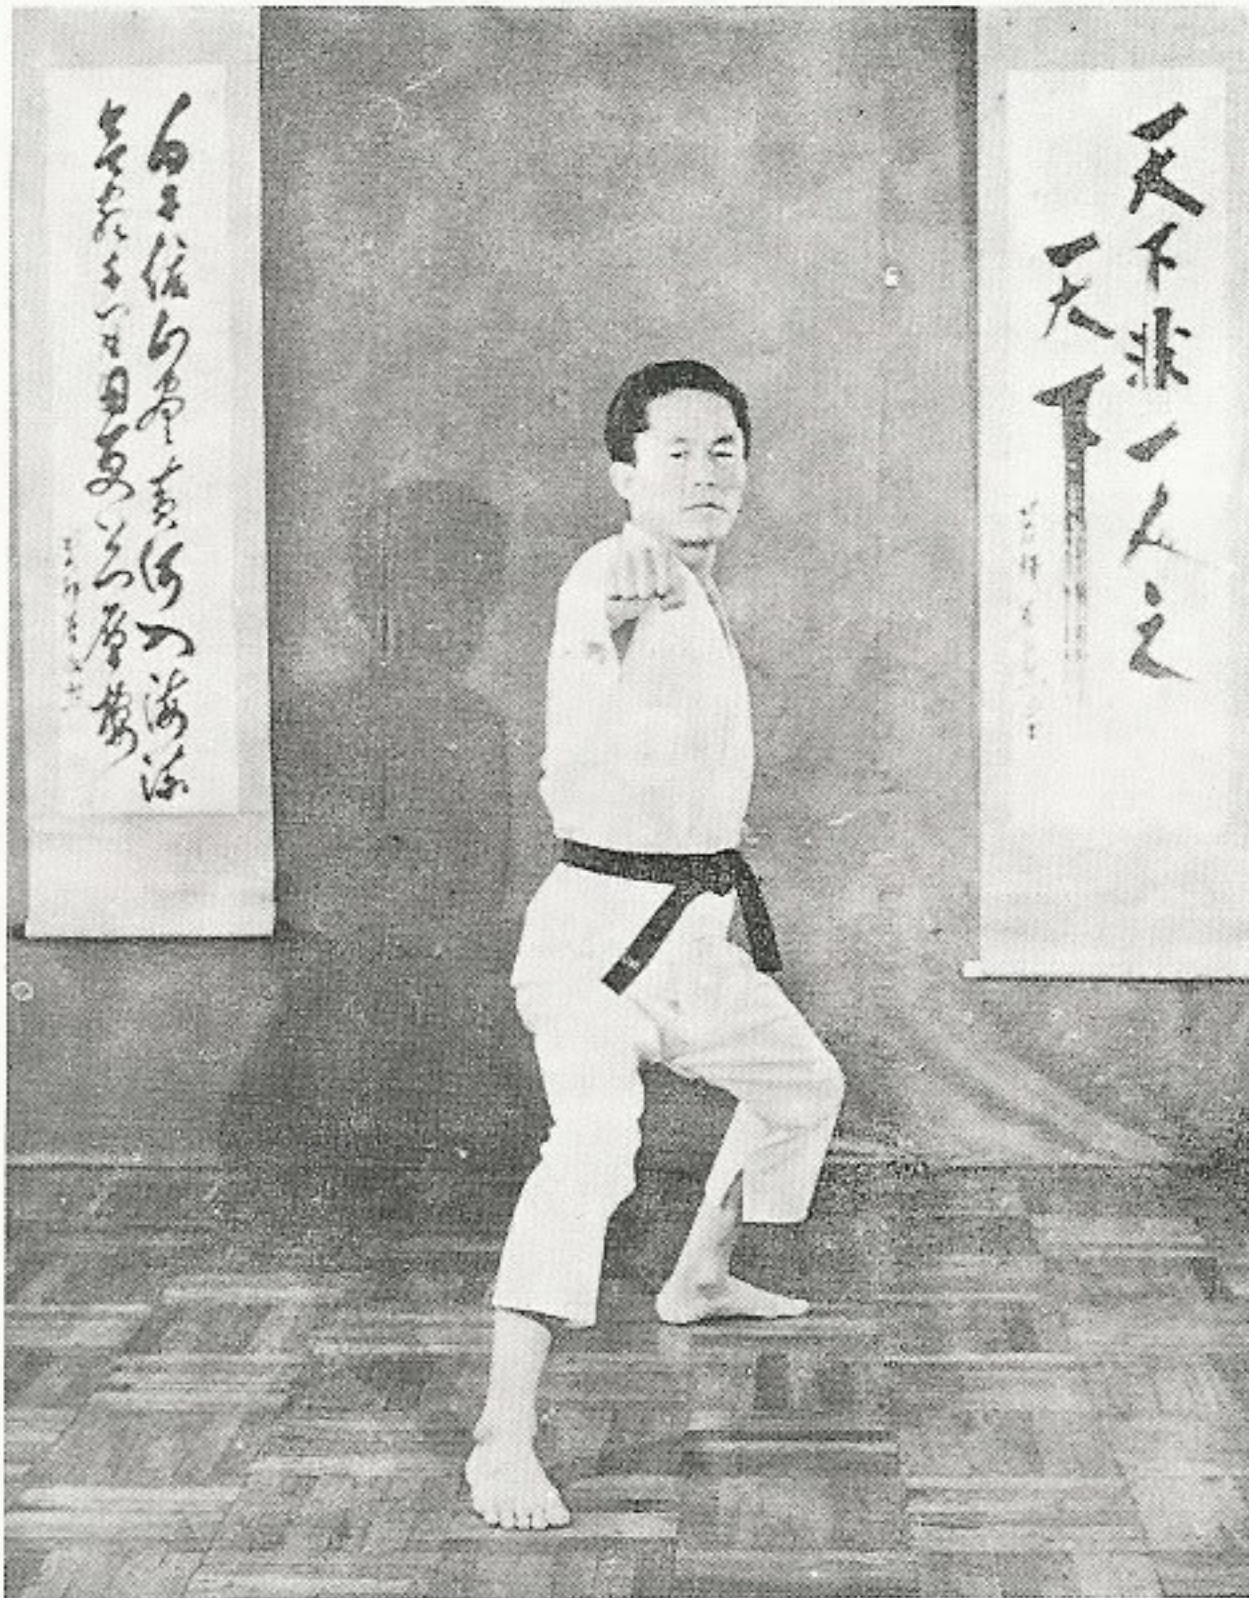 天下非一人之
天下
白日依山盡黃河入海流
欲窮千里目更上一層樓